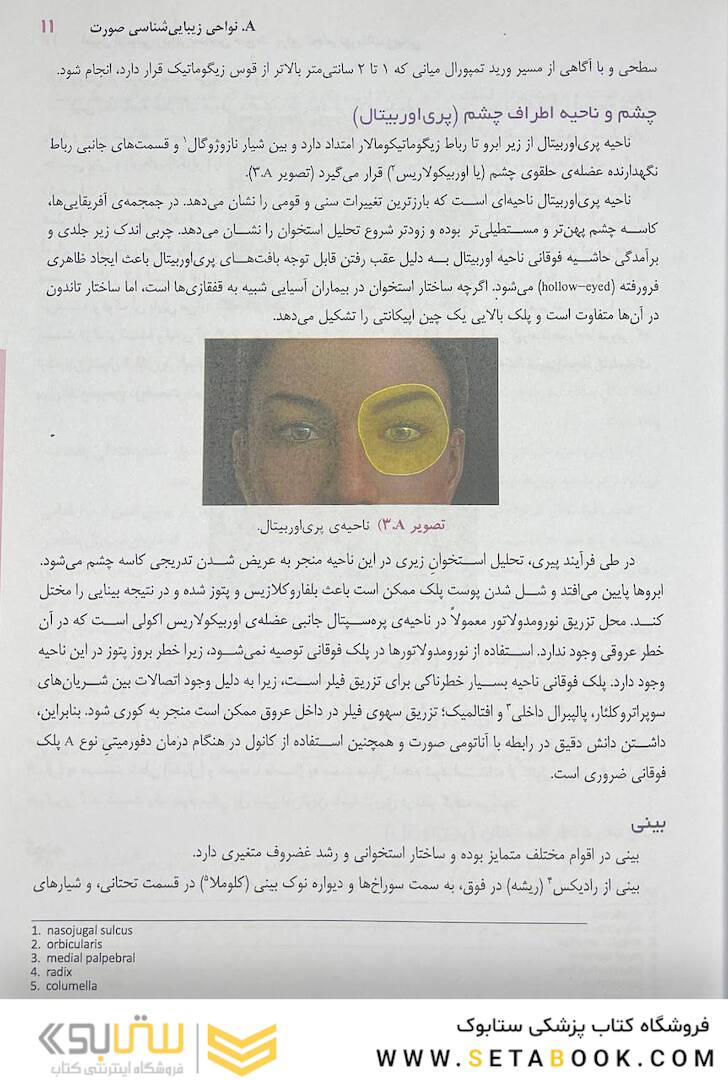 A. نواحی زیبایی‌شناسی صورت ۱۱
سطحی و با آگاهی از مسیر ورید تمپورال میانی که ۱ تا ۲ سانتی‌متر بالاتر از قوس زیگوماتیک قرار دارد، انجام شود.
چشم و ناحیه اطراف چشم (پری‌اوربیتال)
ناحیه پری‌اوربیتال از زیر ابرو تا رباط زیگوماتیکومالار امتداد دارد و بین شیار نازوژوگال۱ و قسمت‌های جانبی رباط
نگهدارنده عضله‌ی حلقوی چشم (یا اوربیکولاریس۲) قرار می‌گیرد (تصویر ۳.A).
ناحیه پری‌اوربیتال ناحیه‌ای است که بارزترین تغییرات سنی و قومی را نشان می‌دهد. در جمجمه‌ی آفریقایی‌ها،
کاسه چشم پهن‌تر و مستطیلی‌تر بوده و زودتر شروع تحلیل استخوان را نشان می‌دهد. چربی اندک زیر جلدی و
برآمدگی حاشیه فوقانی ناحیه اوربیتال به دلیل عقب رفتن قابل توجه بافت‌های پری‌اوربیتال باعث ایجاد ظاهری
فرورفته (hollow-eyed) می‌شود. اگرچه ساختار استخوان در بیماران آسیایی شبیه به قفقازی‌ها است، اما ساختار تاندون
در آن‌ها متفاوت است و پلک بالایی یک چین اپیکانتی را تشکیل می‌دهد.
تصویر ۳.A) ناحیه‌ی پری‌اوربیتال.
در طی فرآیند پیری، تحلیل استخوان زیری در این ناحیه منجر به عریض شدن تدریجی کاسه چشم می‌شود.
ابروها پایین می‌افتد و شل شدن پوست پلک ممکن است باعث بلفاروکلازیس و پتوز شده و در نتیجه بینایی را مختل
کند. محل تزریق نورومدولاتور معمولاً در ناحیه‌ی پره‌سپتال جانبی عضله‌ی اوربیکولاریس اکولی است که در آن
خطر عروقی وجود ندارد. استفاده از نورومدولاتورها در پلک فوقانی توصیه نمی‌شود، زیرا خطر بروز پتوز در این ناحیه
وجود دارد. پلک فوقانی ناحیه بسیار خطرناکی برای تزریق فیلر است، زیرا به دلیل وجود اتصالات بین شریان‌های
سوپراتروکلئار، پالپبرال داخلی۳ و افتالمیک؛ تزریق سهوی فیلر در داخل عروق ممکن است منجر به کوری شود. بنابراین،
داشتن دانش دقیق در رابطه با آناتومی صورت و همچنین استفاده از کانول در هنگام درمان دفورمیتیِ نوع A پلک
فوقانی ضروری است.
بینی
بینی در اقوام مختلف متمایز بوده و ساختار استخوانی و رشد غضروف متغیری دارد.
بینی از رادیکس۴ (ریشه) در فوق، به سمت سوراخ‌ها و دیواره نوک بینی (کلوملا۵) در قسمت تحتانی، و شیارهای
1. nasojugal sulcus
2. orbicularis
3. medial palpebral
4. radix
5. columella
فروشگاه کتاب پزشکی ستابوک
WWW.SETABOOK.COM
ستابوک
فروشگاه اینترنتی کتاب